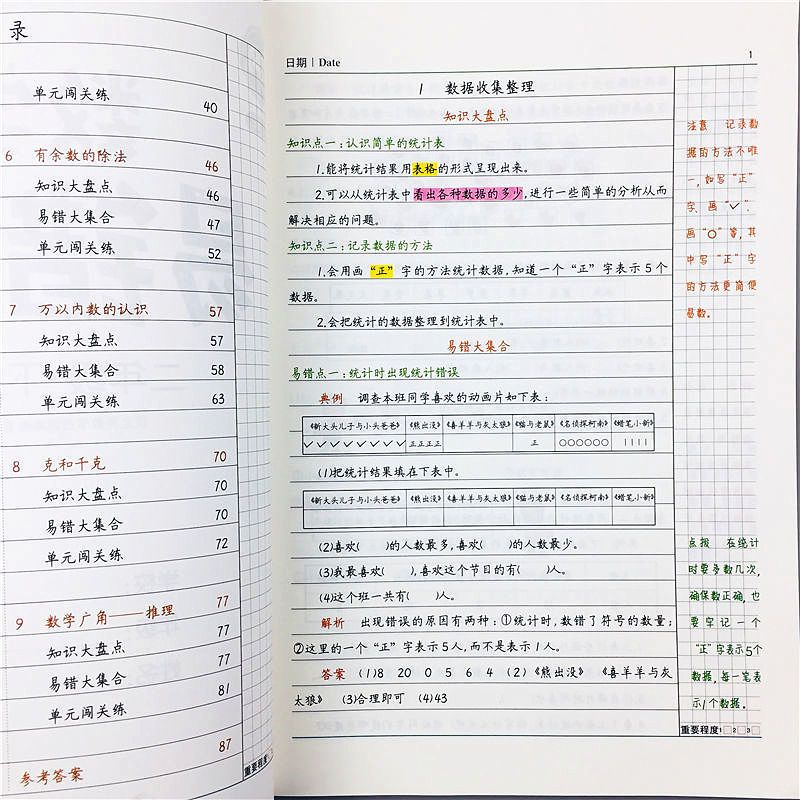 录
单元闯关练 40
6 有余数的除法 46
知识大盘点 46
易错大集合 47
单元闯关练 52
7 万以内数的认识 57
知识大盘点 57
易错大集合 58
单元闯关练 63
8 克和千克 70
知识大盘点 70
易错大集合 70
单元闯关练 72
9 数学广角——推理 77
知识大盘点 77
易错大集合 77
单元闯关练 81
参考答案 87
重要程度
日期 | Date 1
1 数据收集整理
知识大盘点
知识点一:认识简单的统计表
1.能将统计结果用表格的形式呈现出来。
2.可以从统计表中看出各种数据的多少,进行一些简单的分析从而
解决相应的问题。
知识点二:记录数据的方法
1.会用画“正”字的方法统计数据,知道一个“正”字表示5个
数据。
2.会把统计的数据整理到统计表中。
易错大集合
易错点一:统计时出现统计错误
典例 调查本班同学喜欢的动画片如下表:
《新大头儿子与小头爸爸》 《熊出没》 《喜羊羊与灰太狼》 《猫与老鼠》 《名侦探柯南》 《蜡笔小新》
✓✓✓✓✓✓✓✓ 正正正正 正 ○○○○○○ ||||
(1)把统计结果填在下表中。
《新大头儿子与小头爸爸》 《熊出没》 《喜羊羊与灰太狼》 《猫与老鼠》 《名侦探柯南》 《蜡笔小新》
(2)喜欢( )的人数最多,喜欢( )的人数最少。
(3)我最喜欢( ),喜欢这个节目的有( )人。
(4)这个班一共有( )人。
解析 出现错误的原因有两种:①统计时,数错了符号的数量;
②这里的一个“正”字表示5人,而不是表示1人。
答案 (1)8 20 0 5 6 4 (2)《熊出没》 《喜羊羊与灰
太狼》 (3)合理即可 (4)43
注意 记录数
据的方法不唯
一,如写“正”
字、画“✓”、
画“○”等,其
中写“正”字
的方法更简便
易数。
点拨 在统计
时要多数几次,
确保数正确,也
要牢记一个
“正”字表示5个
数据,每一笔表
示1个数据。
重要程度1□2□3□